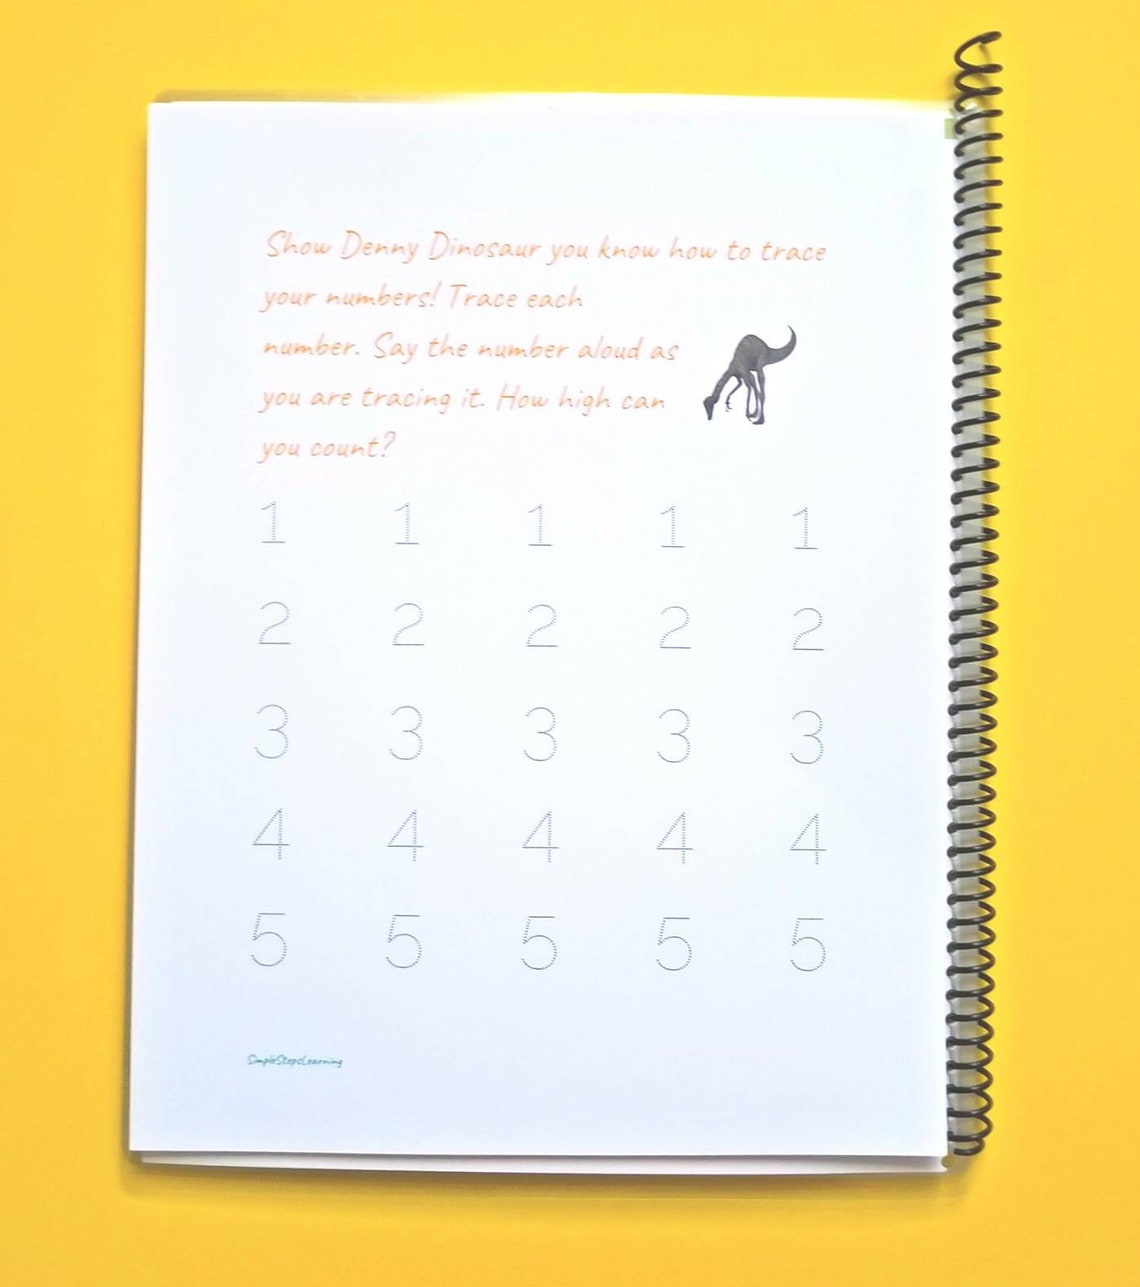 Show Denny Dinosaur you know how to trace
your numbers! Trace each
number. Say the number aloud as
you are tracing it. How high can
you count?
1 1 1 1 1
2 2 2 2 2
3 3 3 3 3
4 4 4 4 4
5 5 5 5 5
SimpleStepsLearning